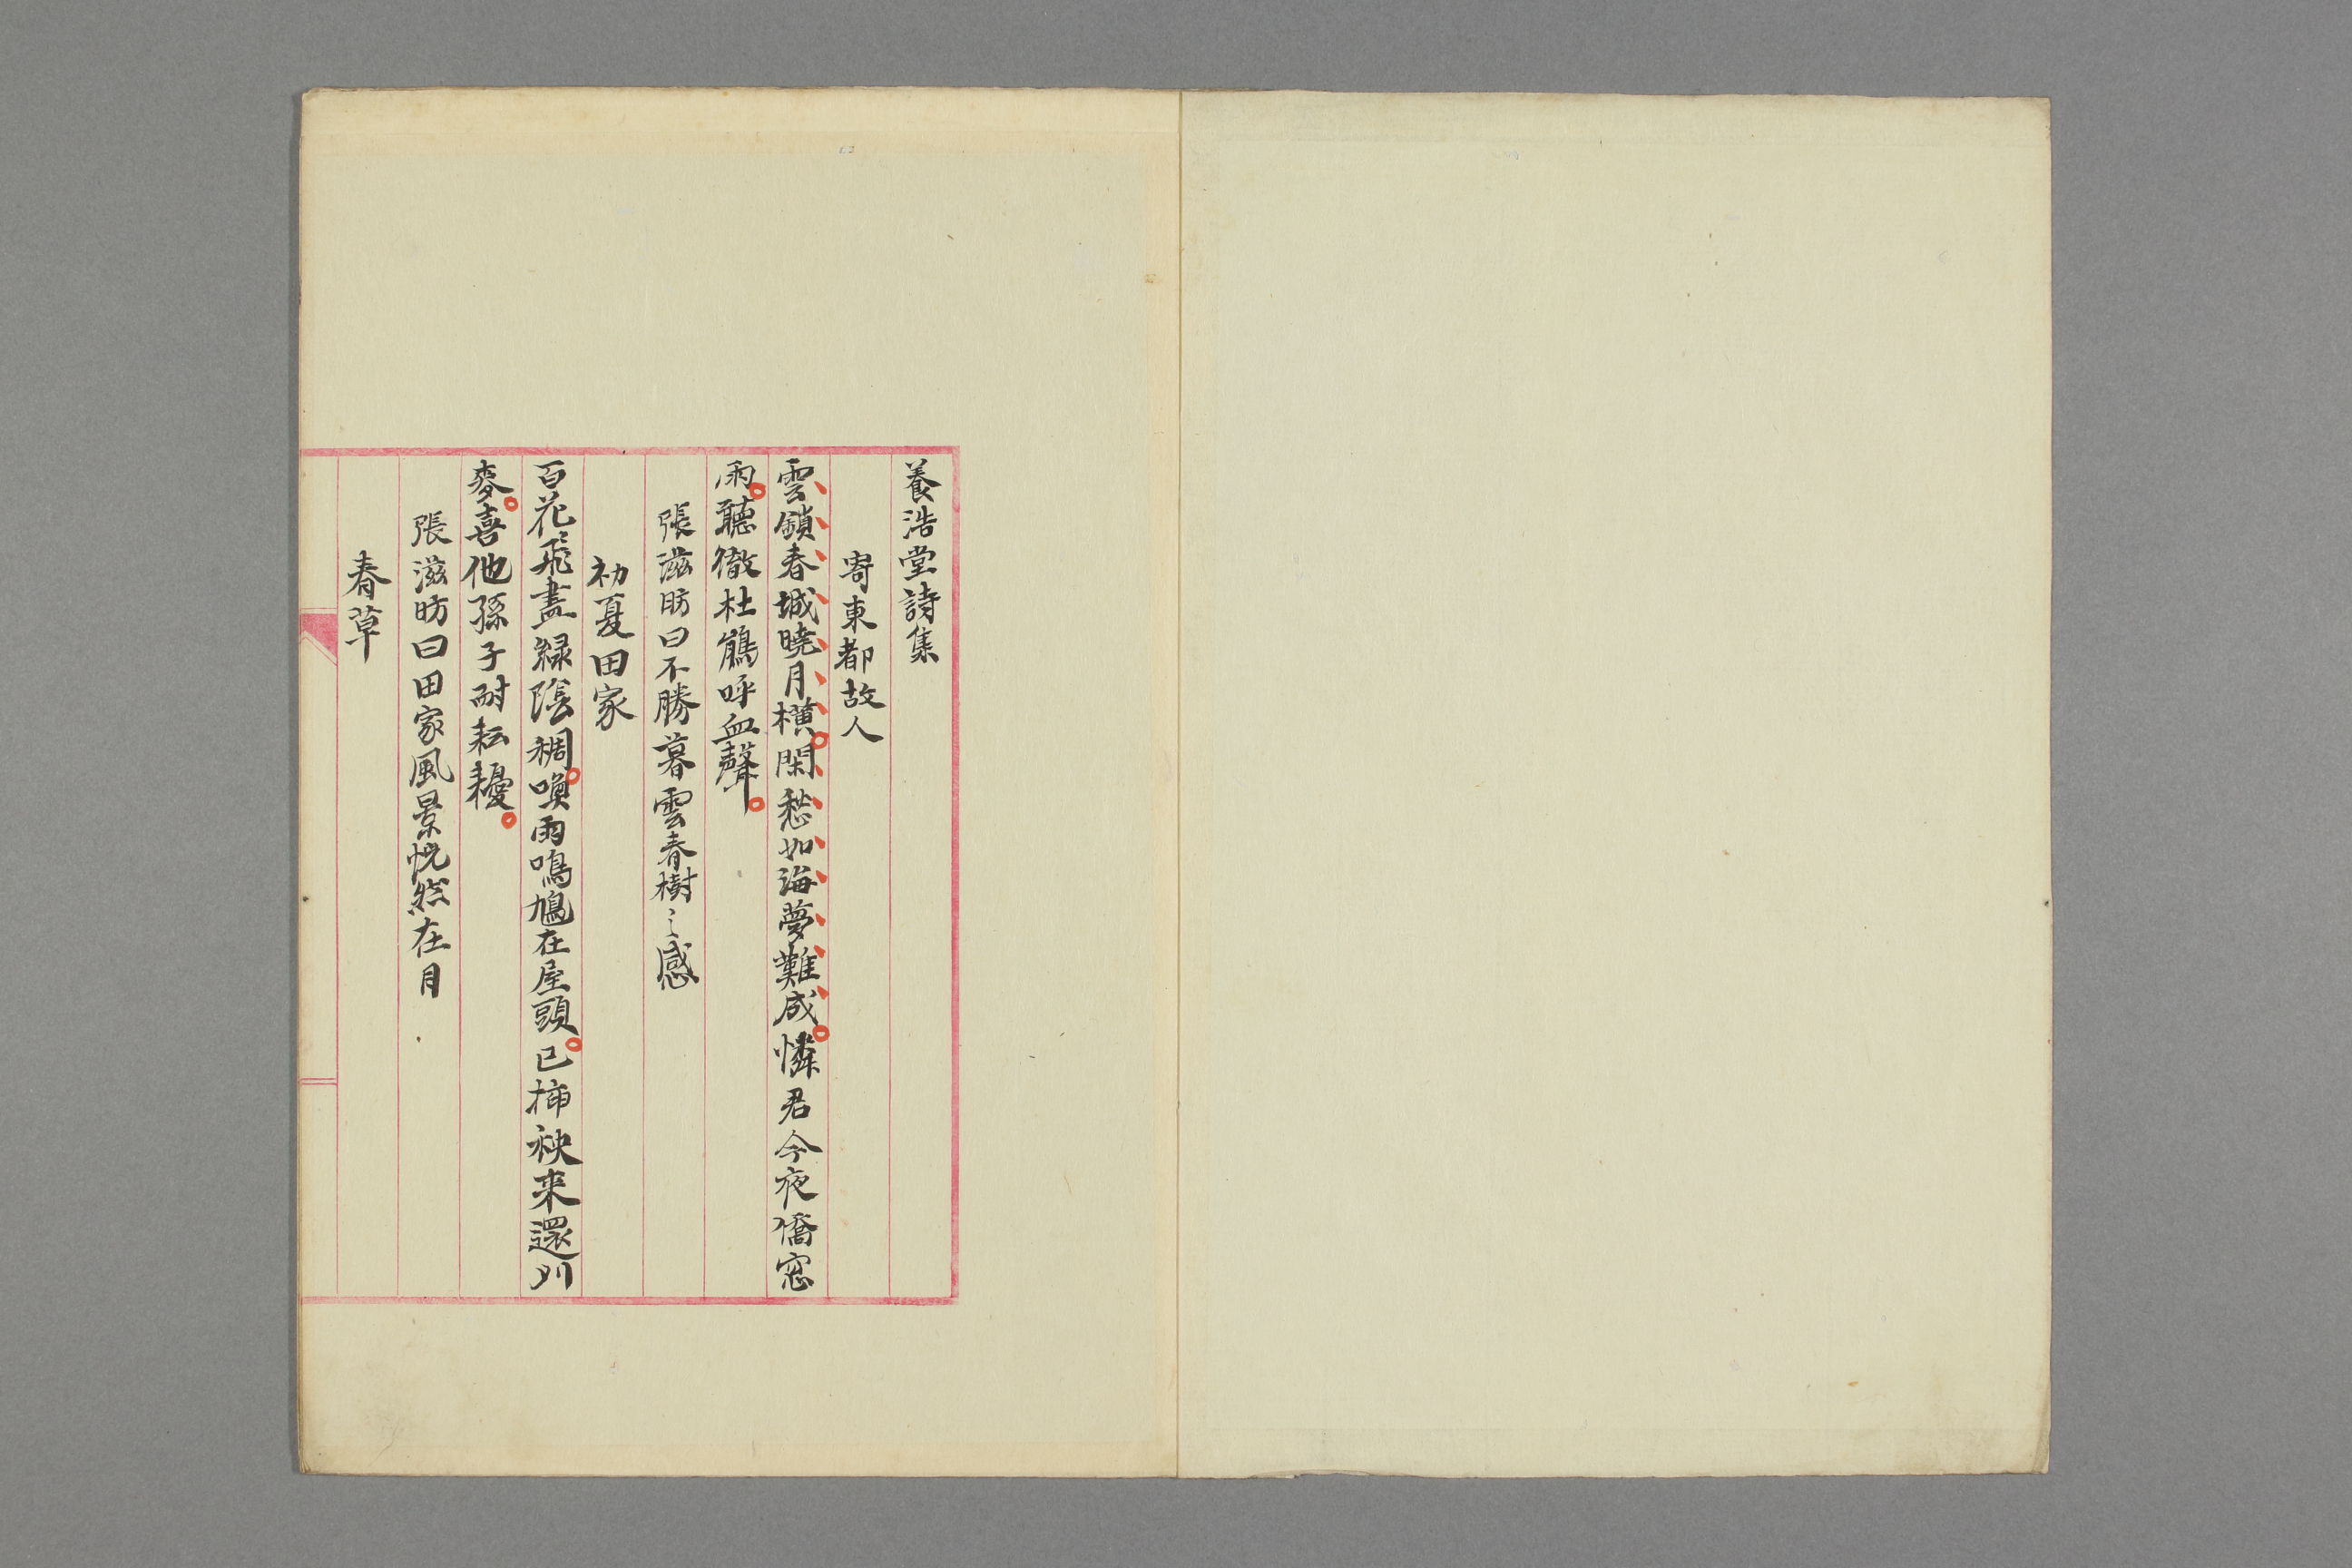 養浩堂詩集
寄東都故人
雲鎖春城曉月橫閑愁如海夢難成憐君今夜僑窓
雨聽徹杜鵑呼血聲
張滋昉曰不勝暮雲春樹之感
初夏田家
百花飛盡綠陰稠喚雨鳴鳩在屋頭已插秧来還刈
麥喜他孫子耐耘耰
張滋昉曰田家風景恍然在月
春草